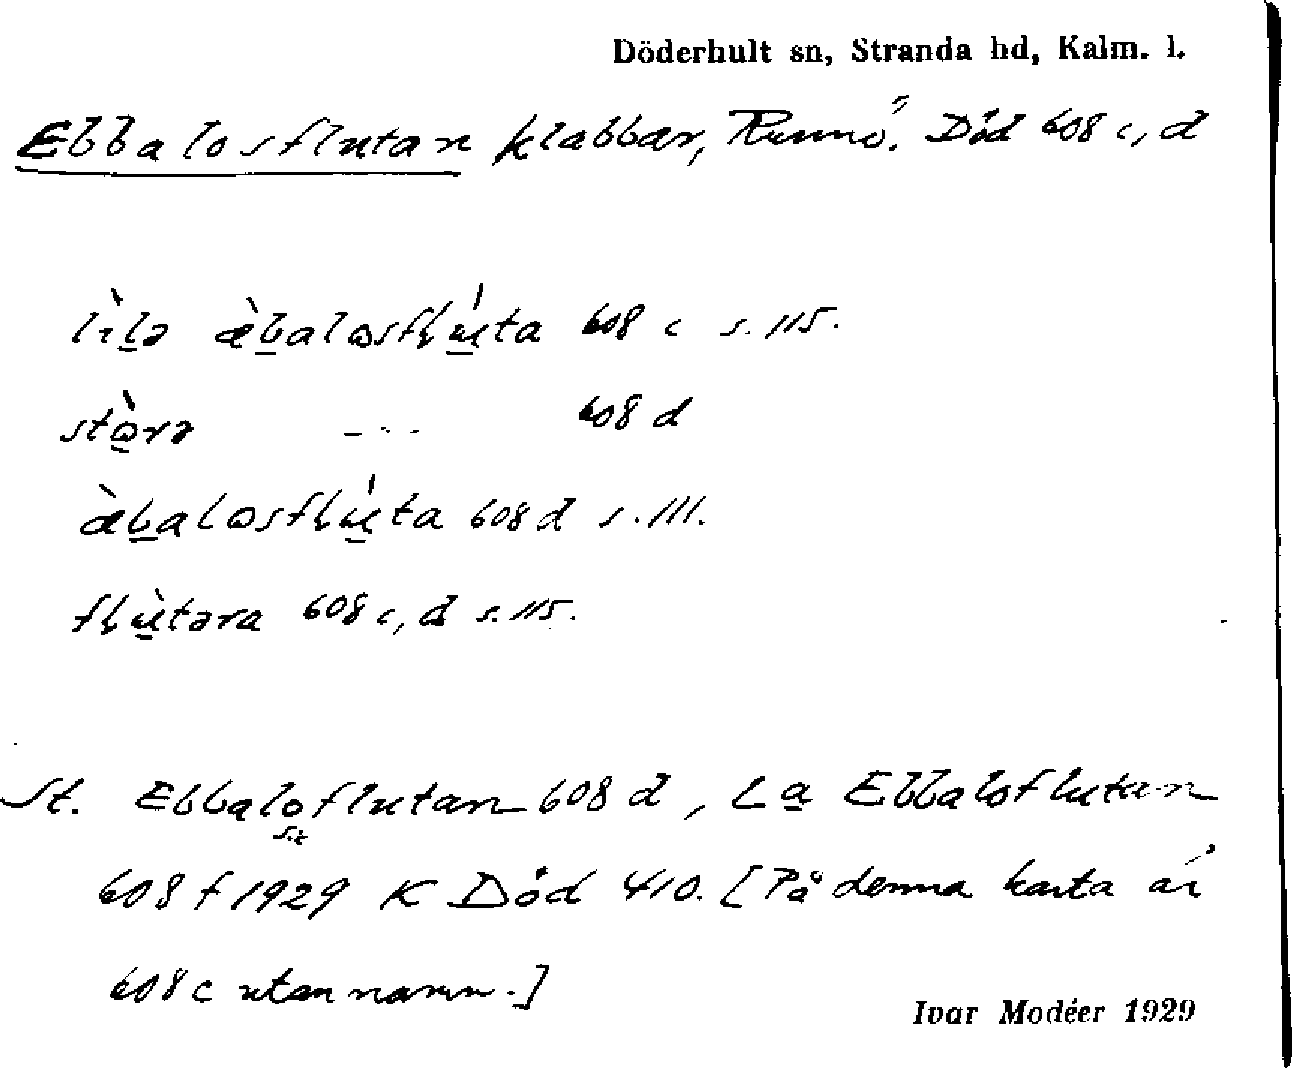 Döderhult sn, Stranda hd, Kalm. l.
Ebbalosflutan klabbar, Runnö. Död 608 c, d
lìl̲ə æ̀b̲alo̲sfl̥u̲̍ta 608 c s. 115.
stò̲rə - - - 608 d
æ̀b̲alo̲sfl̥u̲̍ta 608 d s. 111.
fl̥ù̲təra 608 c, d s. 115.
St. Ebbaloflutan 608 d, La̲ Ebbaloflutan
sic
608 f 1929 K Död 410. [På denna karta är
608 c utan namn.]
Ivar Modéer 1929